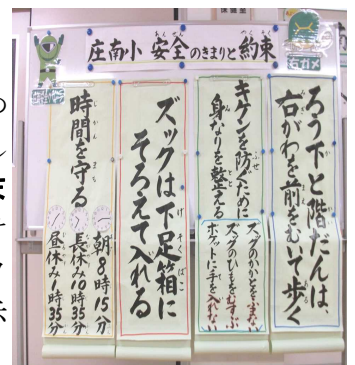 庄南小 安全のきまりと約束
右ガメ
ろう下と階だんは、
右がわを前をむいて歩く
キケンを防ぐために
身なりを整える
ズックのかかとをふまない
ズックのひもをむすぶ
ポケットに手を入れない
ズックは下足箱に
そろえて入れる
時間を守る
朝8時15分
長休み10時35分
昼休み1時35分